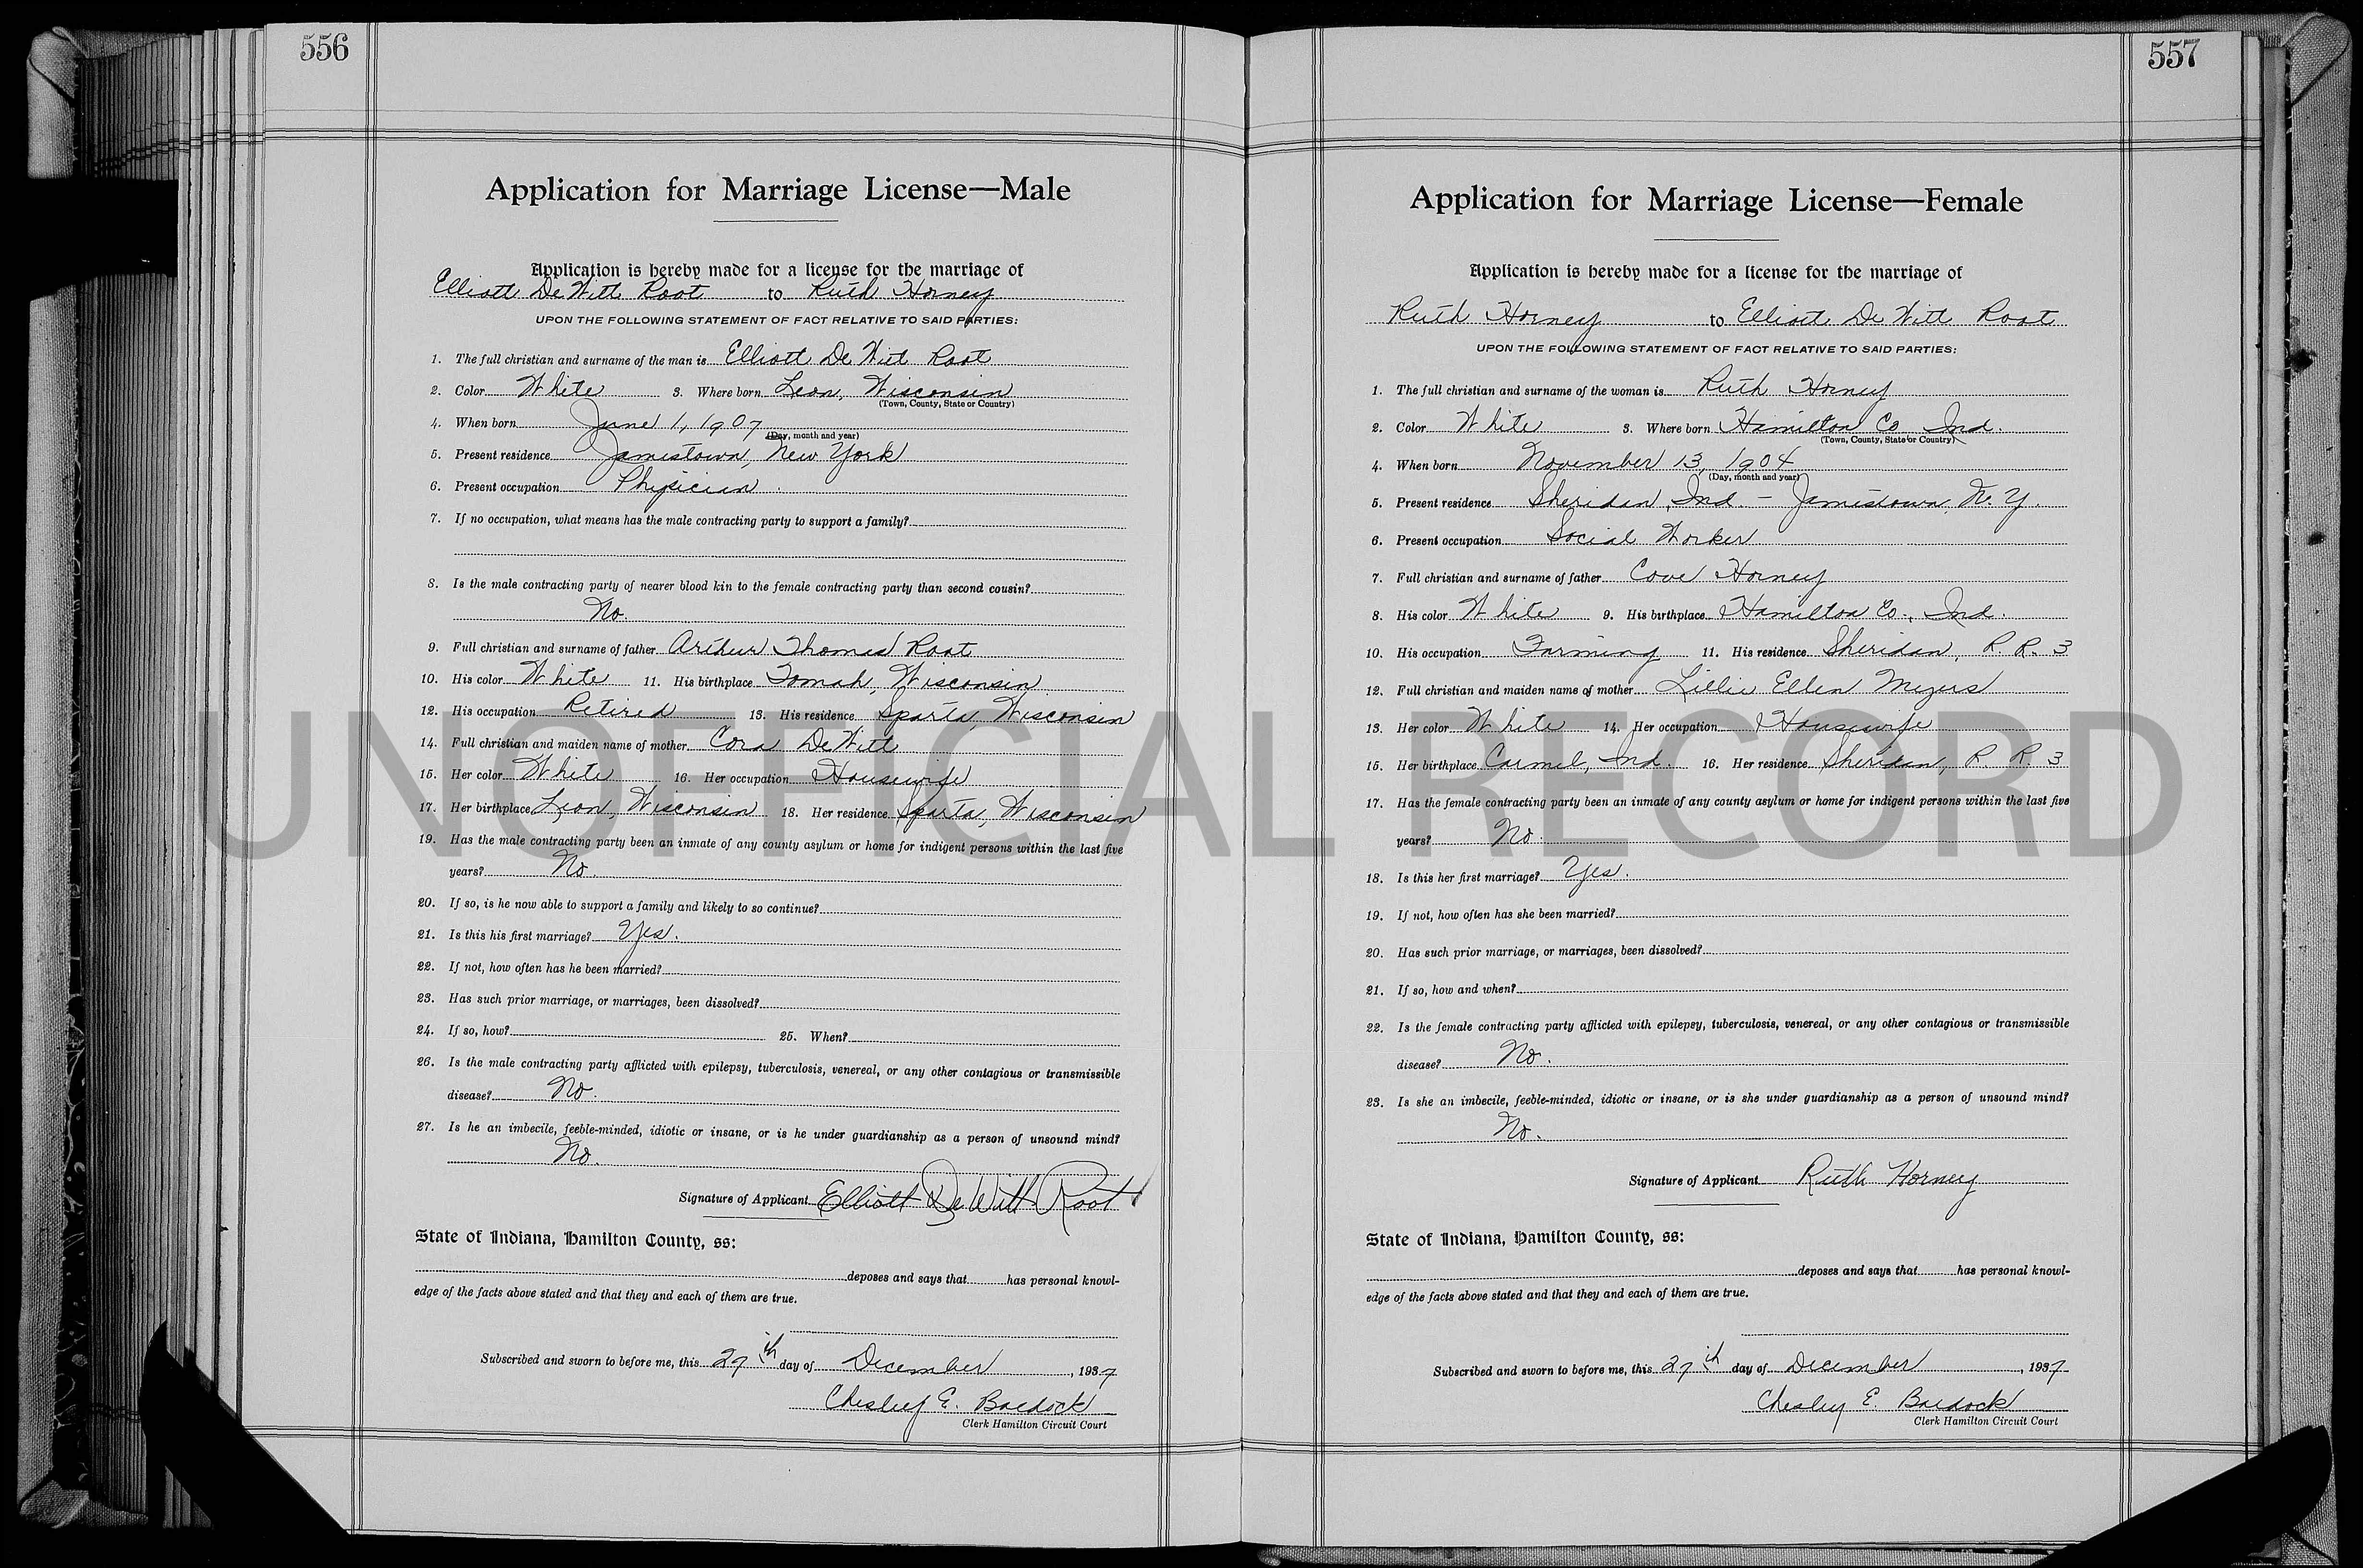 556
Application for Marriage License—Male
Application is hereby made for a license for the marriage of
Elliott De Witt Root to Ruth Horney
UPON THE FOLLOWING STATEMENT OF FACT RELATIVE TO SAID PARTIES:
1. The full christian and surname of the man is Elliott De Witt Root
2. Color White 3. Where born Leon, Wisconsin
(Town, County, State or Country)
4. When born June 1, 1907
(Day, month and year)
5. Present residence Jamestown, New York
6. Present occupation Physician
7. If no occupation, what means has the male contracting party to support a family?
8. Is the male contracting party of nearer blood kin to the female contracting party than second cousin?
No.
9. Full christian and surname of father Arthur Thomas Root
10. His color White 11. His birthplace Tomah, Wisconsin
12. His occupation Retired 13. His residence Sparta, Wisconsin
14. Full christian and maiden name of mother Cora De Witt
15. Her color White 16. Her occupation Housewife
17. Her birthplace Leon, Wisconsin 18. Her residence Sparta, Wisconsin
19. Has the male contracting party been an inmate of any county asylum or home for indigent persons within the last five
years? No.
20. If so, is he now able to support a family and likely to so continue?
21. Is this his first marriage? Yes.
22. If not, how often has he been married?
23. Has such prior marriage, or marriages, been dissolved?
24. If so, how? 25. When?
26. Is the male contracting party afflicted with epilepsy, tuberculosis, venereal, or any other contagious or transmissible
disease? No.
27. Is he an imbecile, feeble-minded, idiotic or insane, or is he under guardianship as a person of unsound mind?
No.
Signature of Applicant Elliott De Witt Root
State of Indiana, Hamilton County, ss:
deposes and says that has personal knowl-
edge of the facts above stated and that they and each of them are true.
Subscribed and sworn to before me, this 27th day of December, 1937
Chesley E. Bardock
Clerk Hamilton Circuit Court
557
Application for Marriage License—Female
Application is hereby made for a license for the marriage of
Ruth Horney to Elliott De Witt Root
UPON THE FOLLOWING STATEMENT OF FACT RELATIVE TO SAID PARTIES:
1. The full christian and surname of the woman is Ruth Horney
2. Color White 3. Where born Hamilton Co Ind.
(Town, County, State or Country)
4. When born November 13, 1904
(Day, month and year)
5. Present residence Sheridan, Ind. - Jamestown, N. Y.
6. Present occupation Social Worker
7. Full christian and surname of father Cove Horney
8. His color White 9. His birthplace Hamilton Co., Ind.
10. His occupation Farming 11. His residence Sheridan, R. R. 3
12. Full christian and maiden name of mother Lillie Ellen Myers
13. Her color White 14. Her occupation Housewife
15. Her birthplace Carmel, Ind. 16. Her residence Sheridan, R. R. 3
17. Has the female contracting party been an inmate of any county asylum or home for indigent persons within the last five
years? No.
18. Is this her first marriage? Yes.
19. If not, how often has she been married?
20. Has such prior marriage, or marriages, been dissolved?
21. If so, how and when?
22. Is the female contracting party afflicted with epilepsy, tuberculosis, venereal, or any other contagious or transmissible
disease? No.
23. Is she an imbecile, feeble-minded, idiotic or insane, or is she under guardianship as a person of unsound mind?
No.
Signature of Applicant Ruth Horney
State of Indiana, Hamilton County, ss:
deposes and says that has personal knowl-
edge of the facts above stated and that they and each of them are true.
Subscribed and sworn to before me, this 27th day of December, 1937
Chesley E. Bardock
Clerk Hamilton Circuit Court
UNOFFICIAL RECORD